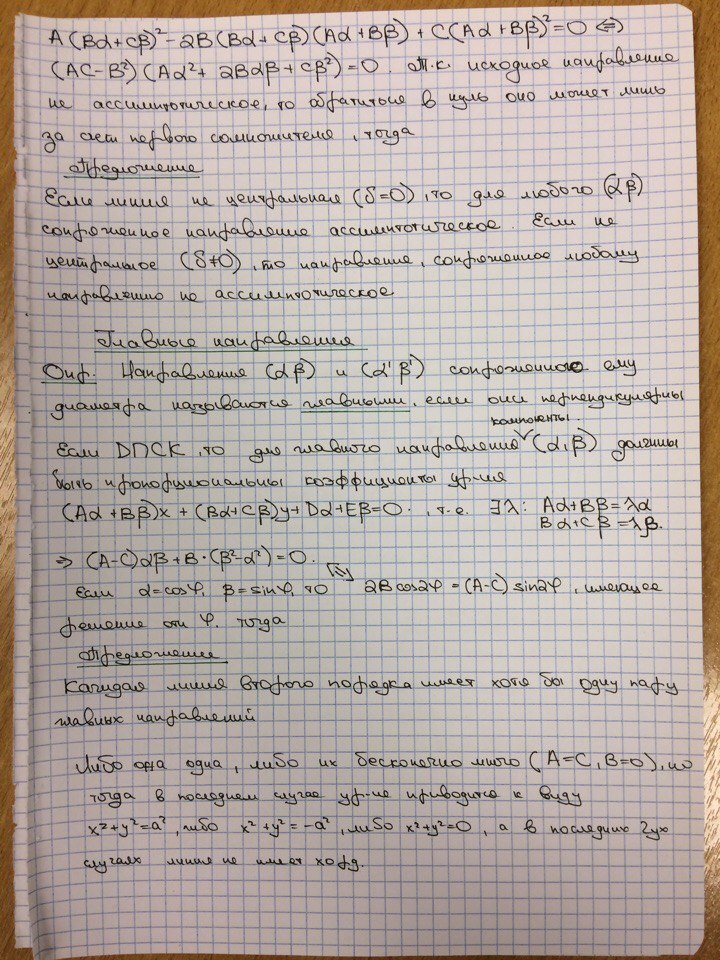 A(Bα+Cβ)²-2B(Bα+Cβ)(Aα+Bβ)+C(Aα+Bβ)²=0 ⇔
(AC-B²)(Aα²+2Bαβ+Cβ²)=0. Т.к. исходное направление
не ассимптотическое, то обратиться в нуль оно может лишь
за счет первого сомножителя, тогда
Предложение
Если линия не центральная (δ=0), то для любого (αβ)
сопряженное направление ассимптотическое. Если не
центральное (δ≠0), то направление, сопряженное любому
направлению не ассимптотическое
Главные направления
Опр. Направления (αβ) и (α'β') сопряженного ему
диаметра называются главными, если они перпендикулярны
компоненты.
Если ДПСК, то для главного направления (α,β) должны
быть пропорциональны коэффициенты ур-ия
(Aα+Bβ)x+(Bα+Cβ)y+Dα+Eβ=0., т.е. ∃λ: Aα+Bβ=λα
Bα+Cβ=λβ.
⇒ (A-C)αβ+B·(β²-α²)=0.
Если α=cosφ, β=sinφ, то ⇔ 2Bcos2φ=(A-C)sin2φ, имеющее
решение отн φ. тогда
Предложение
Каждая линия второго порядка имеет хотя бы одну пару
главных направлений
Либо одна, либо их бесконечно много (A=C, B=0), но
тогда в последнем случае ур-ие приводится к виду
x²+y²=a², либо x²+y²=-a², либо x²+y²=0, а в последних 2ух
случаях линия не имеет хорд.